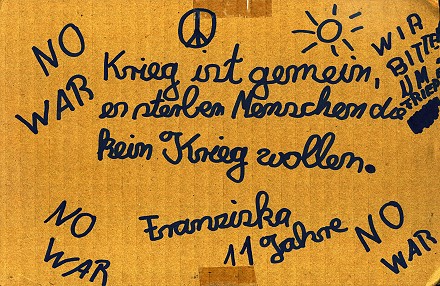 NO
WAR
Krieg ist gemein,
es sterben Menschen die
kein Krieg wollen.
WIR
BITTEN
UM
FRIEDEN
NO
WAR
Franziska
11 Jahre
NO
WAR